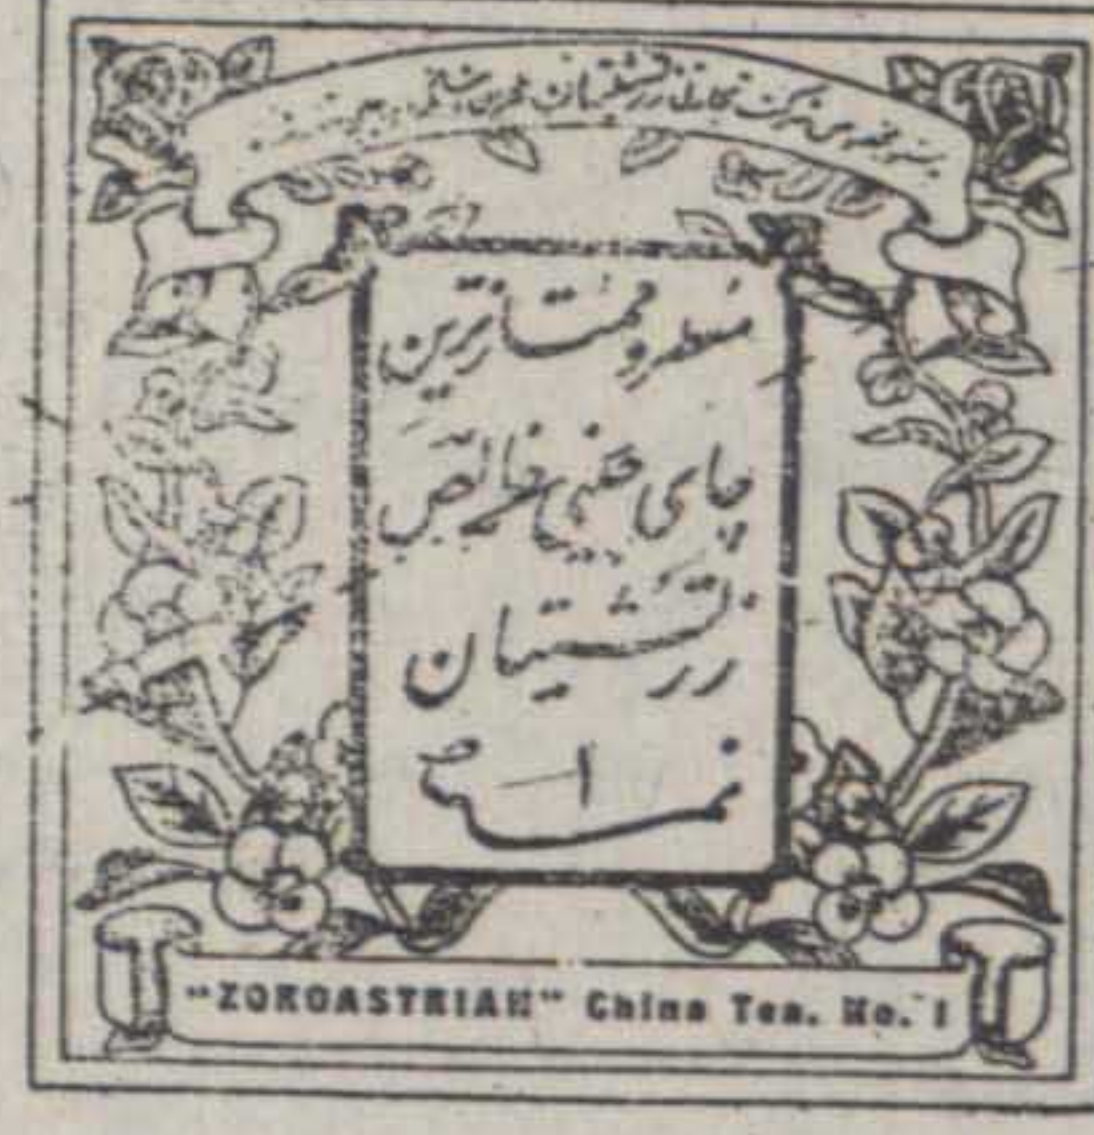 شرکت تجارتی زرتشتیان
معطر و ممتازترین
چای چینی خالص
زرتشتیان
نمره ۱
"ZOROASTRIAN" China Tea. No. 1